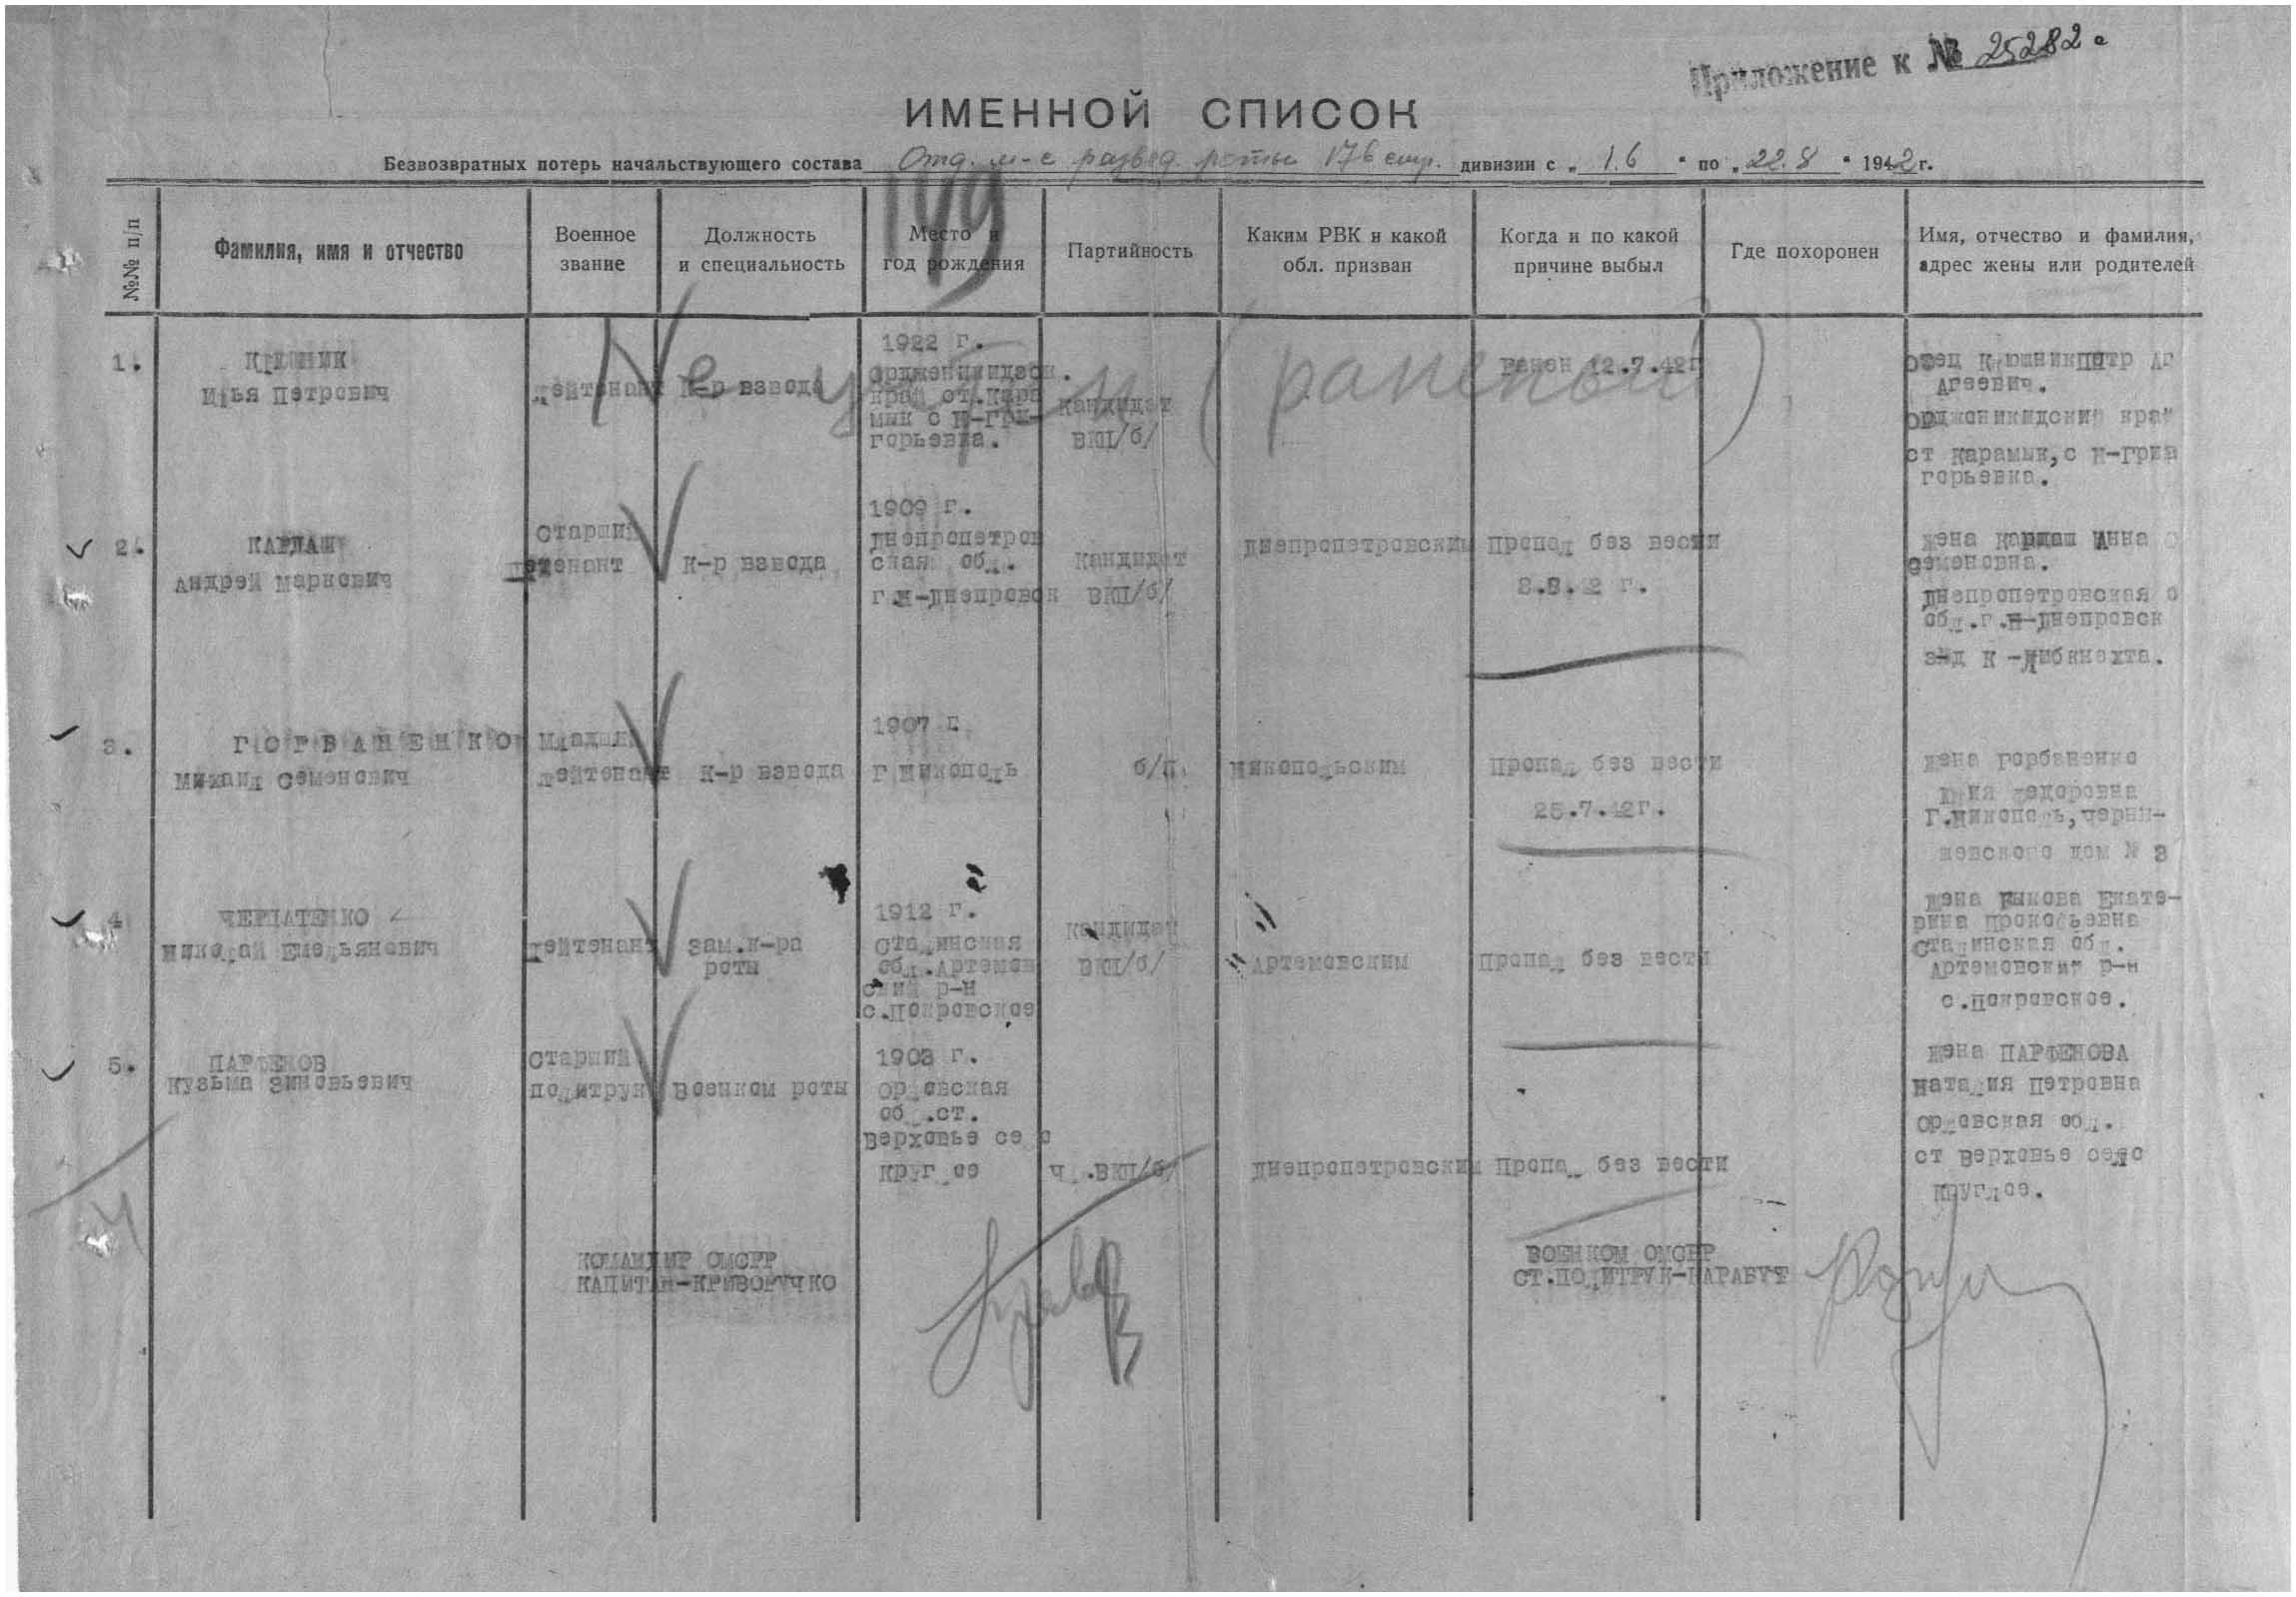 Приложение к № 25282с
ИМЕННОЙ СПИСОК
Безвозвратных потерь начальствующего состава Отд. м-с развед. роты 176 стр. дивизии с „ 1.6 " по „ 22.8 " 1942 г.
149
№№ п/п
Фамилия, имя и отчество
Военное звание
Должность и специальность
Место и год рождения
Партийность
Каким РВК и какой обл. призван
Когда и по какой причине выбыл
Где похоронен
Имя, отчество и фамилия, адрес жены или родителей
Не учтен (раненый)
1.
Илья Петрович
лейтенант
к-р взвода
1922 г.
орджоникидзск.
край ст.кара
мык с н-гри-
горьевка.
кандидат
ВКП/б/
ранен 12.7.42г
отец петр аг
агеевич.
орджоникидский край
ст карамык, с н-гри
горьевка.
2.
КАРДАШ
Андрей маркович
старший
летенант
к-р взвода
1909 г.
днепропетров
ская обл.
г.н-днепровск
кандидат
ВКП/б/
днепропетровским
пропал без вести
8.8.42 г.
жена кардаш анна с
семеновна.
днепропетровская о
обл.г.н-днепровск
з-д к-либкнехта.
3.
ГОРБАНЕНКО
михаил семенович
младший
лейтенант
к-р взвода
1907 г.
г никополь
б/п.
никопольским
пропал без вести
25.7.42г.
жена горбаненко
федоровна
г.никополь, черны-
шевского дом № 3
4
ЧЕРПАТЕНКО
николай емельянович
лейтенант
зам.к-ра
роты
1912 г.
сталинская
обл.Артемов
ский р-н
с.покровское
кандидат
ВКП/б/
Артемовским
пропал без вести
жена Быкова Екате-
рина прокофьевна
сталинская обл.
артемовский р-н
с.покровское.
5.
ПАРФЕНОВ
кузьма зиновьевич
старший
политрук
военком роты
1903 г.
орловская
обл.ст.
верховье село
круглое
чл.ВКП/б/
днепропетровским
пропал без вести
жена ПАРФЕНОВА
наталия петровна
орловская обл.
ст верховье село
круглое.
4
КОМАНДИР ОМСРР
КАПИТАН-КРИВОРУЧКО
ВОЕНКОМ ОМСРР
СТ.ПОЛИТРУК-КАРАБУТ